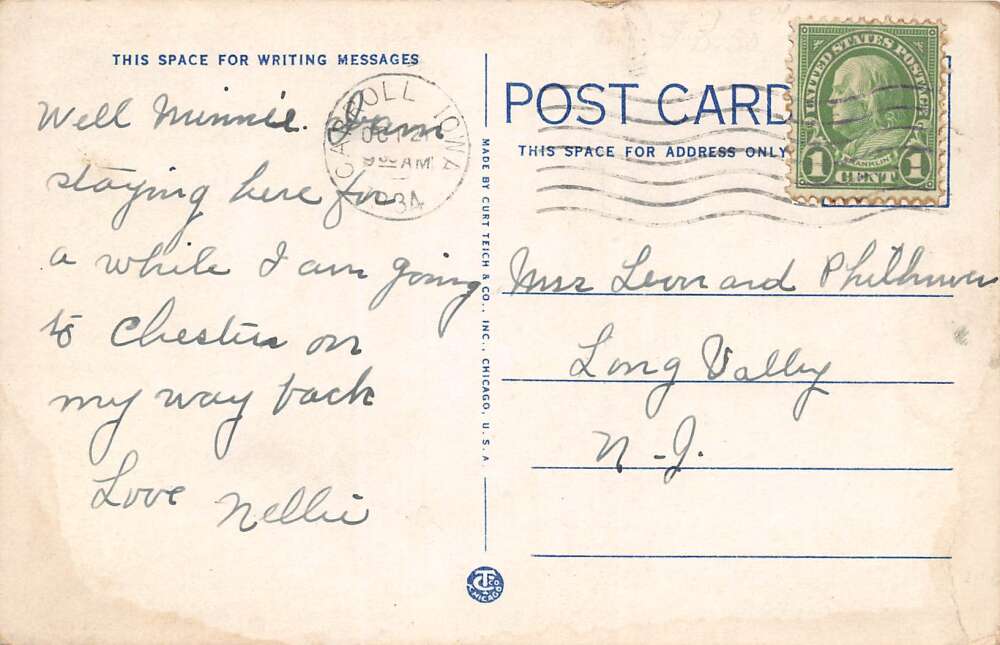 THIS SPACE FOR WRITING MESSAGES
Well Minnie. I am
staying here for
a while I am going
to Chester on
my way back
Love Nellie
CARROLL IOWA
OCT 21
9 30 AM
1934
MADE BY CURT TEICH & CO., INC., CHICAGO, U.S.A.
POST CARD
THIS SPACE FOR ADDRESS ONLY
UNITED STATES POSTAGE
FRANKLIN
1 CENT 1
Mrs Leonard Philhower
Long Valley
N-J.
CHICAGO